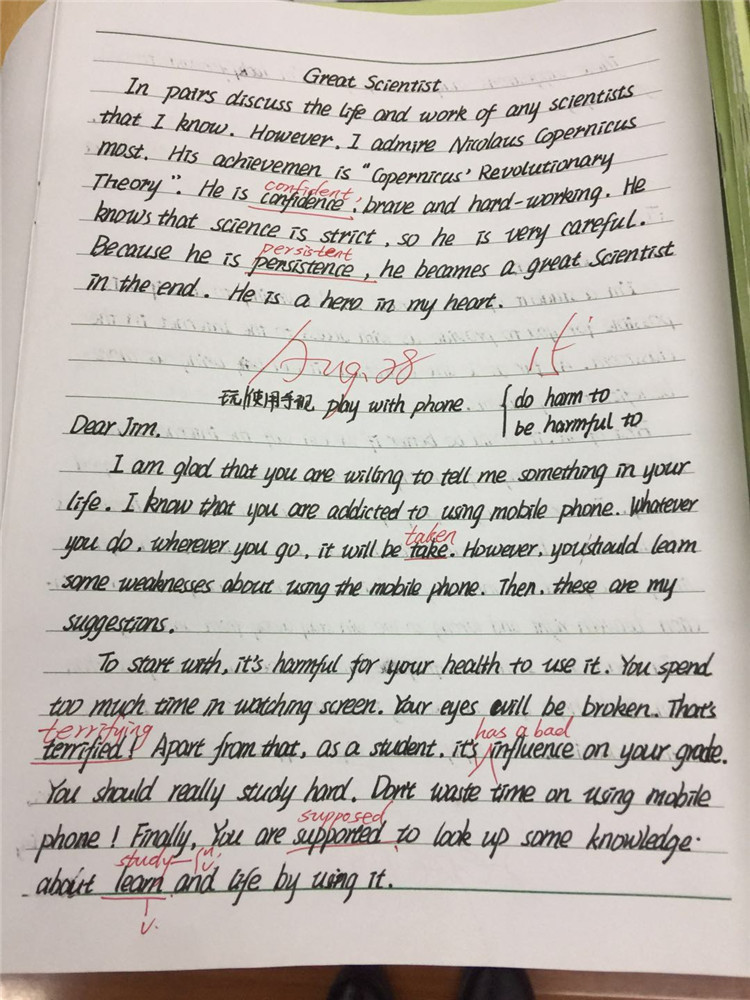 Great Scientist
In pairs discuss the life and work of any scientists
that I know. However, I admire Nicolaus Copernicus
most. His achievemen is "Copernicus' Revolutionary
confident
Theory". He is confidence, brave and hard-working. He
knows that science is strict, so he is very careful.
persistent
Because he is persistence, he becomes a great Scientist
in the end. He is a hero in my heart.
Aug. 28 15
玩/使用手机 play with phone { do harm to
be harmful to
Dear Jim,
I am glad that you are willing to tell me something in your
life. I know that you are addicted to using mobile phone. Whatever
taken
you do, wherever you go, it will be take. However, you should learn
some weaknesses about using the mobile phone. Then, these are my
suggestions.
To start with, it's harmful for your health to use it. You spend
too much time in watching screen. Your eyes will be broken. That's
terrifying has a bad
terrified! Apart from that, as a student, it's influence on your grade.
You should really study hard. Don't waste time on using mobile
supposed
phone! Finally, You are supported to look up some knowledge
study { n. v.
about learn and life by using it.
v.